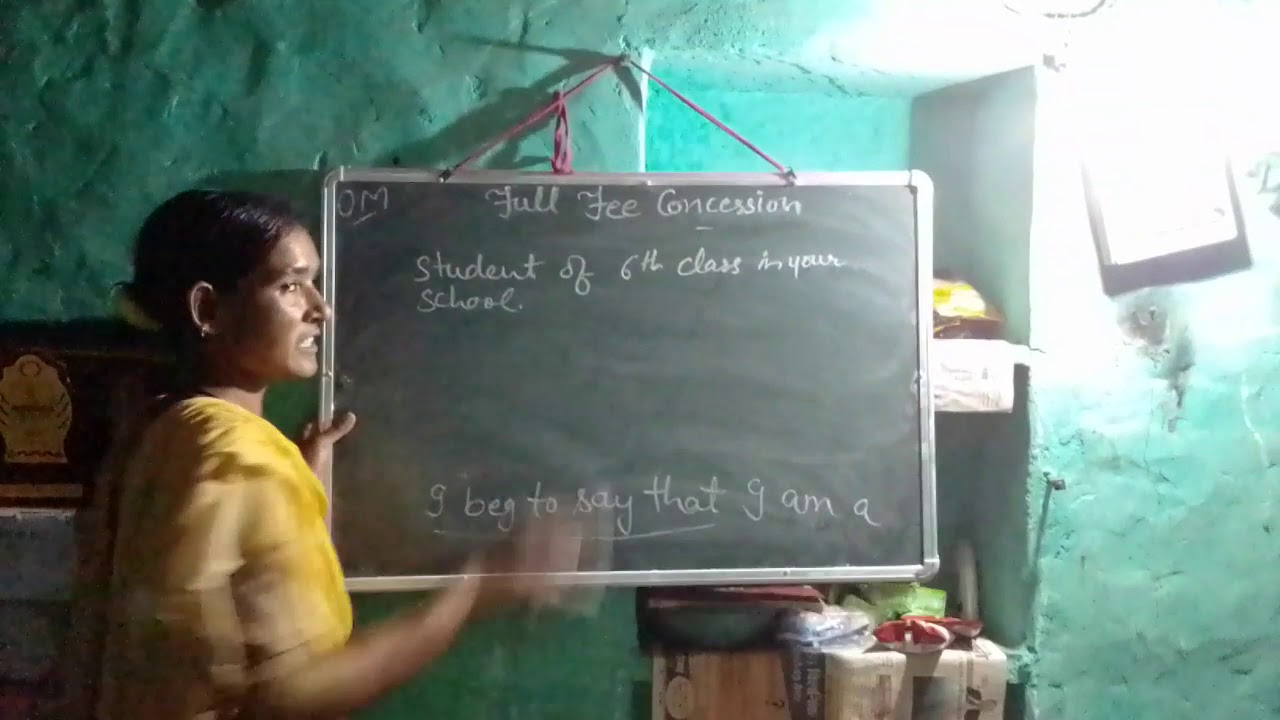 OM
Full Fee Concession
Student of 6th class in your
School.
I beg to say that I am a